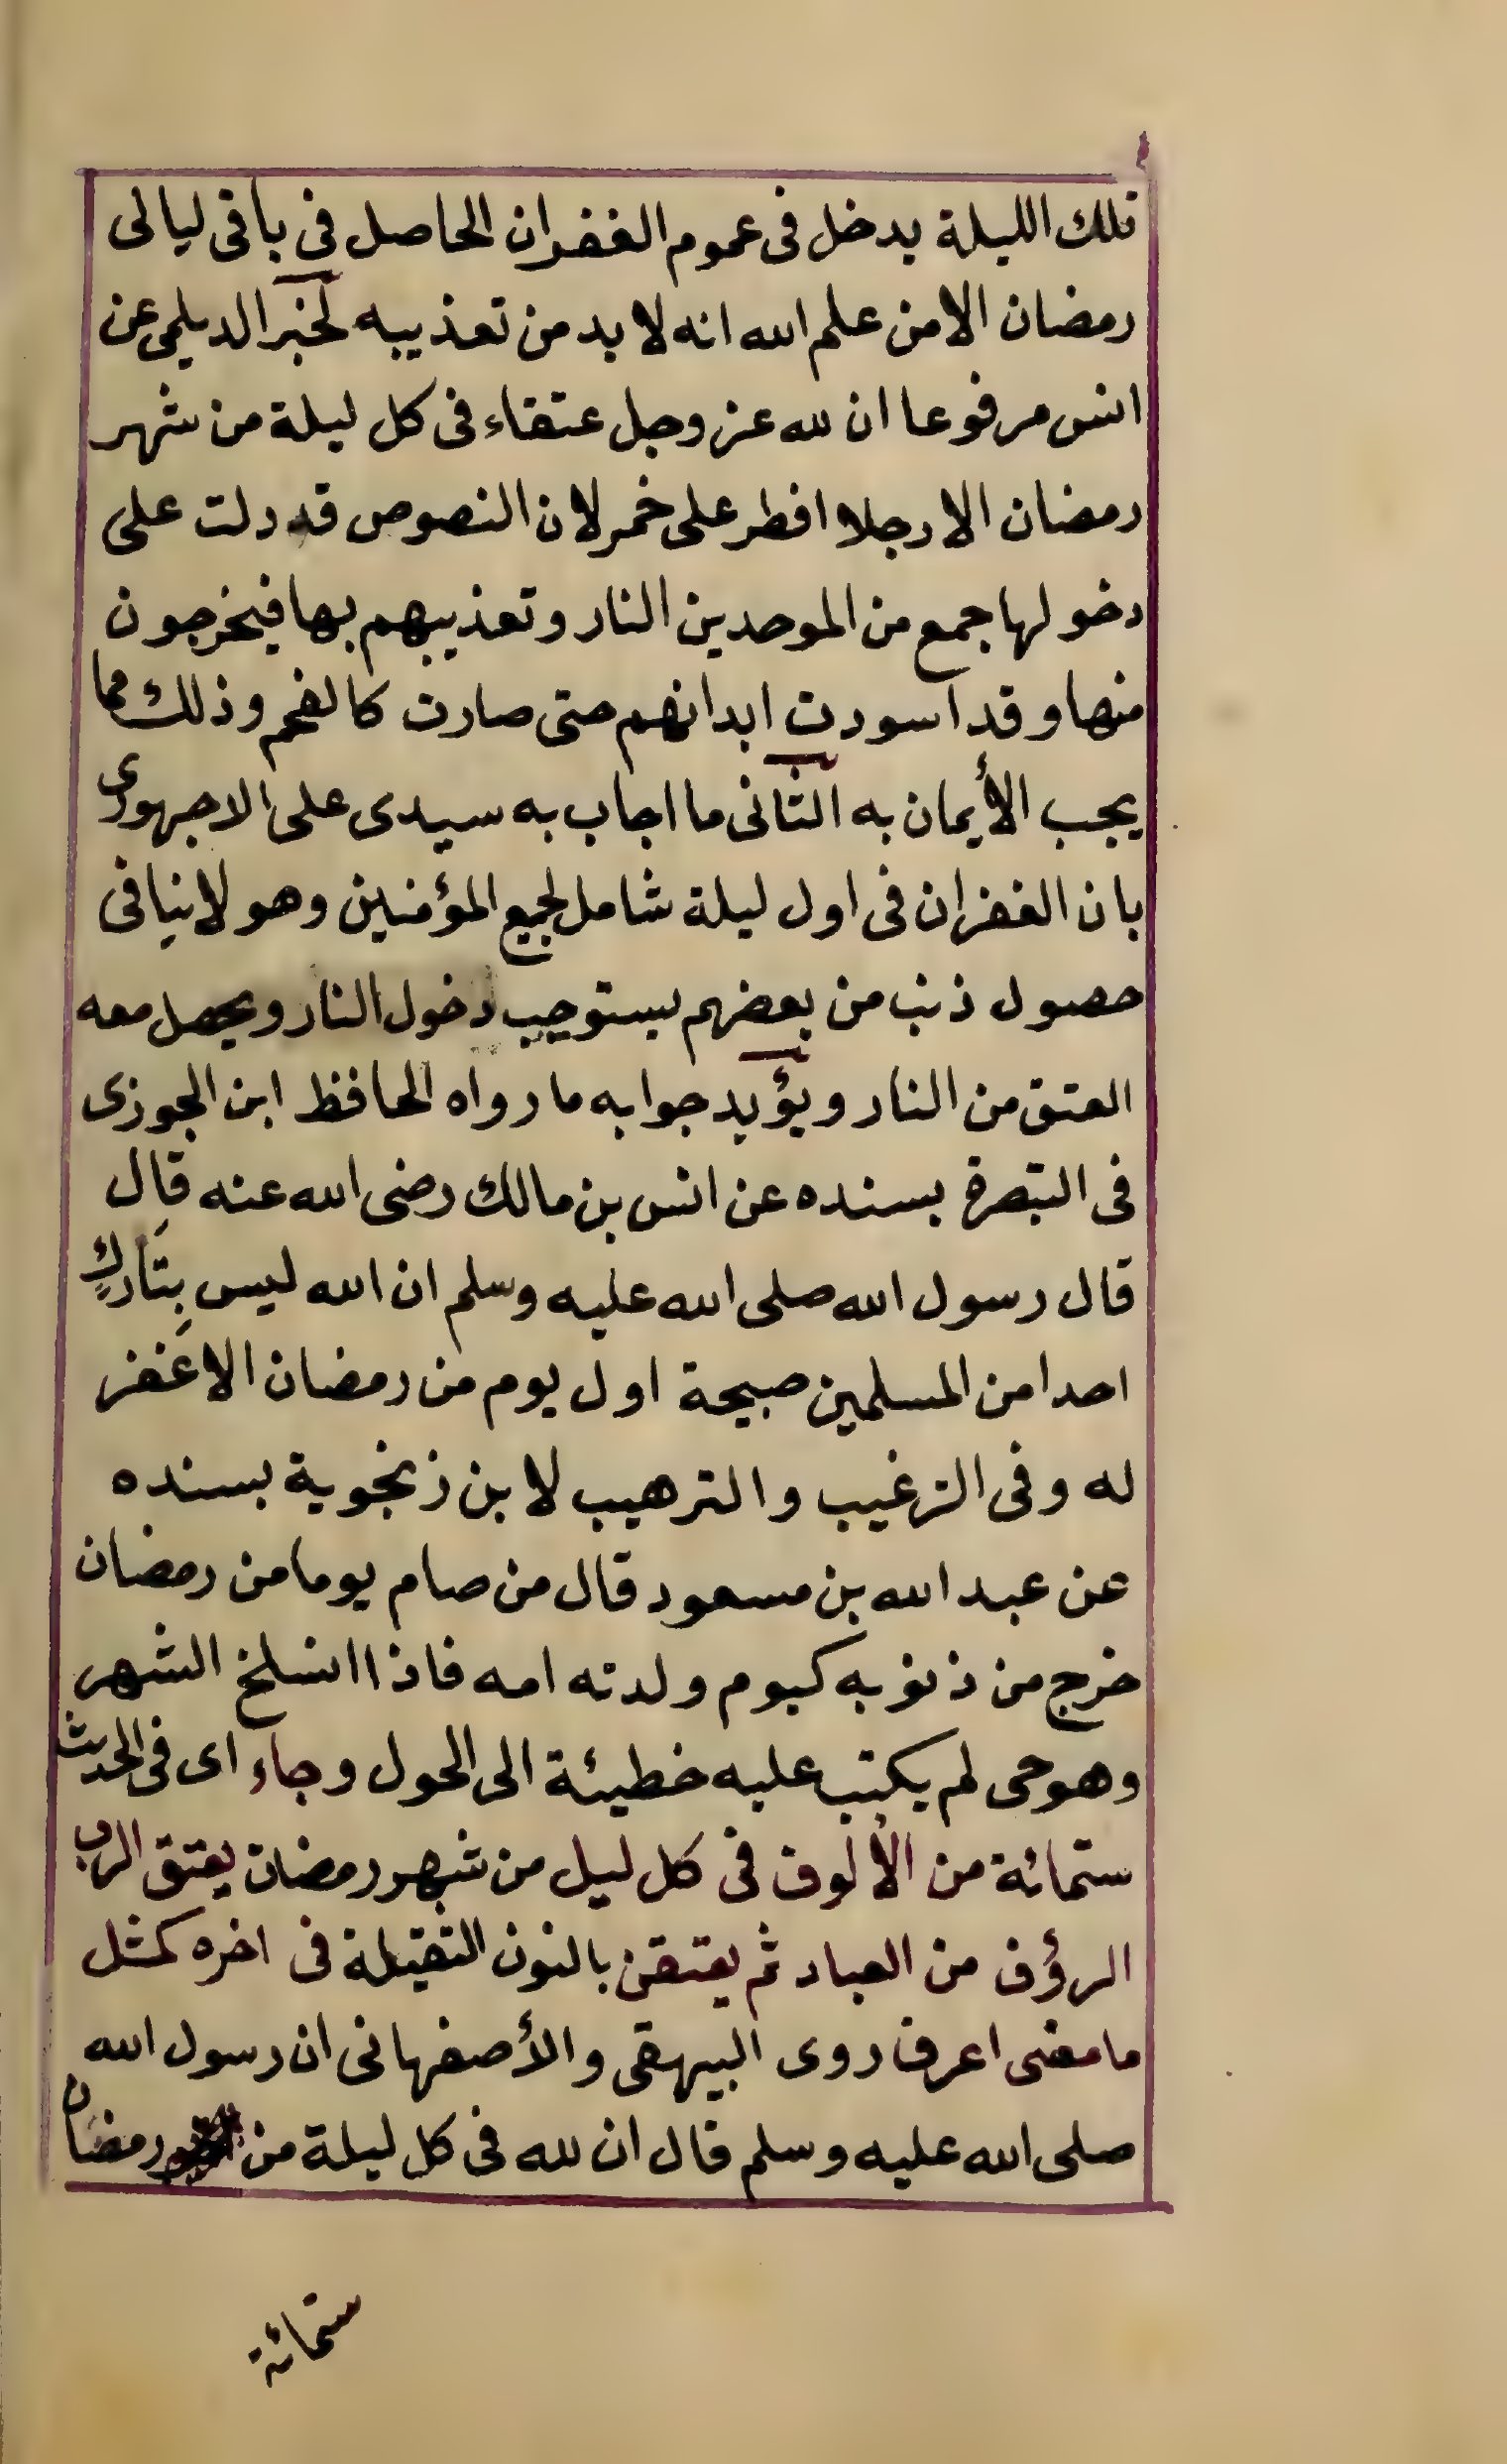 تلك الليلة يدخل فى عموم الغفران الحاصل فى باقى ليالى
رمضان الامن علم الله انه لا بد من تعذيبه لخبر الديلمى عن
انس مرفوعا ان لله عز وجل عتقاء فى كل ليلة من شهر
رمضان الا رجلا افطر على خمر لان النصوص قد دلت على
دخولها جمع من الموحدين النار وتعذيبهم بها فيخرجون
منها وقد اسودت ابدانهم حتى صارت كالفحم وذلك مما
يجب الأيمان به الثانى ما اجاب به سيدى على الاجهورى
بان الغفران فى اول ليلة شامل لجميع المؤمنين وهو لا ينافى
حصول ذنب من بعضهم يستوجب دخول النار ويحصل معه
العتق من النار ويؤيد جوابه ما رواه الحافظ ابن الجوزى
فى التبصرة بسنده عن انس بن مالك رضى الله عنه قال
قال رسول الله صلى الله عليه وسلم ان الله ليس بِتَاركٍ
احدا من المسلمين صبيحة اول يوم من رمضان الا غَفر
له وفى الترغيب والترهيب لابن زنجوية بسنده
عن عبد الله بن مسعود قال من صام يوما من رمضان
خرج من ذنوبه كيوم ولدته امه فاذا انسلخ الشهر
وهو حى لم يكتب عليه خطيئة الى الحول وجاء اى فى الحديث
ستمائة من الألوف فى كل ليل من شهر رمضان يعتق الرب
الرؤف من العباد ثم يعتقن بالنون الثقيلة فى اخره كمثل
ما مضى اعرف روى البيهقى والأصفهانى ان رسول الله
صلى الله عليه وسلم قال ان لله فى كل ليلة من رمضان
ستمائة